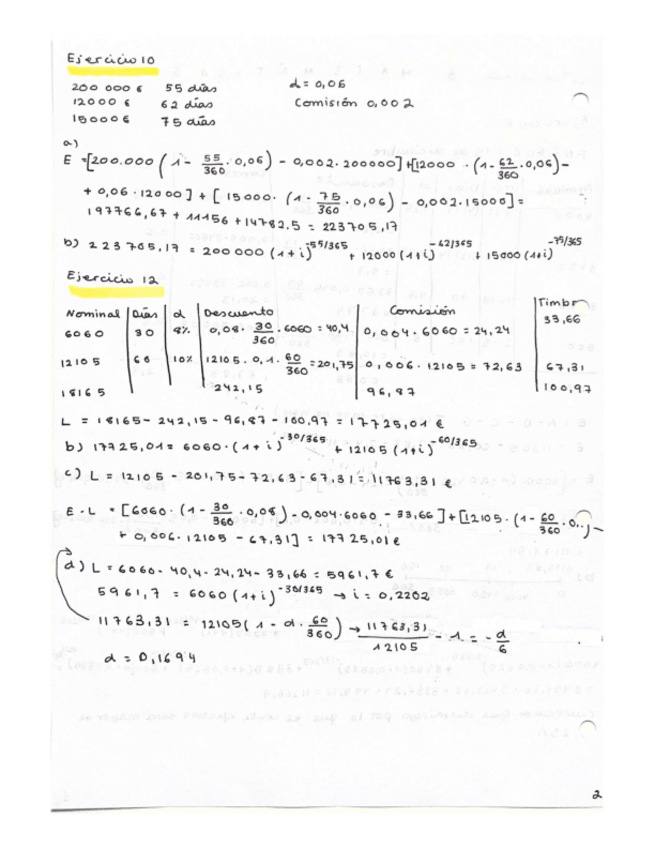 Ejercicio 10
200 000 € 55 días d = 0,06
12000 € 62 días Comisión 0,002
15000 € 75 días
a)
E = [200.000 (1 - 55/360 · 0,06) - 0,002 · 200000] + [12000 · (1 - 62/360 · 0,06) -
+ 0,06 · 12000] + [ 15000 · (1 - 75/360 · 0,06) - 0,002 · 15000] =
197766,67 + 11156 + 14782.5 = 223705,17
b) 223705,17 = 200000 (1+i)^-55/365 + 12000 (1+i)^-62/365 + 15000 (1+i)^-75/365
Ejercicio 12
Nominal Días d Descuento Comisión Timbr
6060 30 8% 0,08 · 30/360 · 6060 = 40,4 0,004 · 6060 = 24,24 33,66
12105 60 10% 12105 · 0,1 · 60/360 = 201,75 0,006 · 12105 = 72,63 67,31
18165 242,15 96,87 100,97
L = 18165 - 242,15 - 96,87 - 100,97 = 17725,01 €
b) 17725,01 = 6060 · (1+i)^-30/365 + 12105 (1+i)^-60/365
c) L = 12105 - 201,75 - 72,63 - 67,31 = 11763,31 €
E · L = [6060 · (1 - 30/360 · 0,08) - 0,004 · 6060 - 33,66] + [12105 · (1 - 60/360 · 0..) -
+ 0,006 · 12105 - 67,31] = 17725,01 €
d) L = 6060 - 40,4 - 24,24 - 33,66 = 5961,7 €
5961,7 = 6060 (1+i)^-30/365 → i = 0,2202
11763,31 = 12105 (1 - d · 60/360) → 11763,31/12105 - 1 = - d/6
d = 0,1694
2